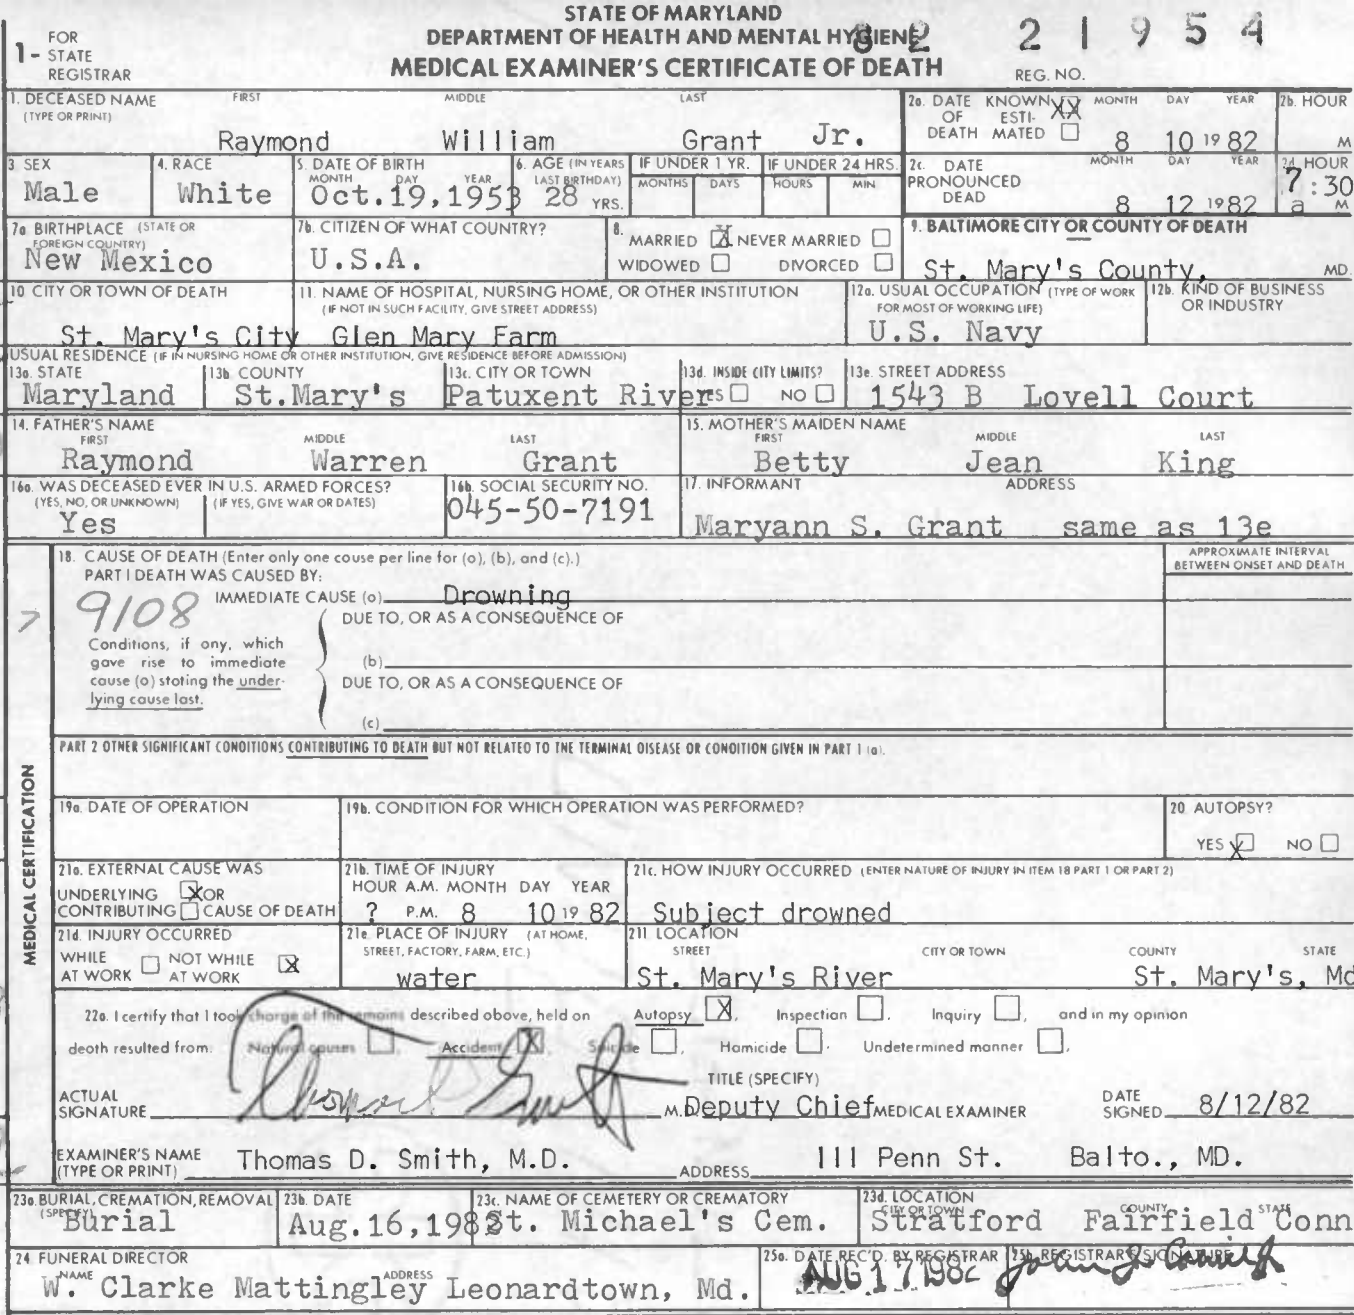 STATE OF MARYLAND
DEPARTMENT OF HEALTH AND MENTAL HYGIENE
MEDICAL EXAMINER'S CERTIFICATE OF DEATH
1- FOR STATE REGISTRAR
82 21954
REG. NO.
1. DECEASED NAME (TYPE OR PRINT) FIRST MIDDLE LAST
Raymond William Grant Jr.
2a. DATE OF DEATH KNOWN XX ESTIMATED MONTH DAY YEAR
8 10 19 82
2b. HOUR M
3. SEX
Male
4. RACE
White
5. DATE OF BIRTH MONTH DAY YEAR
Oct.19,1953
6. AGE (IN YEARS LAST BIRTHDAY)
28 YRS.
IF UNDER 1 YR. MONTHS DAYS
IF UNDER 24 HRS. HOURS MIN.
2c. DATE PRONOUNCED DEAD MONTH DAY YEAR
8 12 1982
2d. HOUR
7:30 a M
7a. BIRTHPLACE (STATE OR FOREIGN COUNTRY)
New Mexico
7b. CITIZEN OF WHAT COUNTRY?
U.S.A.
8. MARRIED X NEVER MARRIED
WIDOWED DIVORCED
9. BALTIMORE CITY OR COUNTY OF DEATH
St. Mary's County, MD.
10 CITY OR TOWN OF DEATH
St. Mary's City
11. NAME OF HOSPITAL, NURSING HOME, OR OTHER INSTITUTION
(IF NOT IN SUCH FACILITY, GIVE STREET ADDRESS)
Glen Mary Farm
12a. USUAL OCCUPATION (TYPE OF WORK FOR MOST OF WORKING LIFE)
U.S. Navy
12b. KIND OF BUSINESS OR INDUSTRY
USUAL RESIDENCE (IF IN NURSING HOME OR OTHER INSTITUTION, GIVE RESIDENCE BEFORE ADMISSION)
13a. STATE
Maryland
13b. COUNTY
St.Mary's
13c. CITY OR TOWN
Patuxent River
13d. INSIDE CITY LIMITS?
YES NO
13e. STREET ADDRESS
1543 B Lovell Court
14. FATHER'S NAME FIRST MIDDLE LAST
Raymond Warren Grant
15. MOTHER'S MAIDEN NAME FIRST MIDDLE LAST
Betty Jean King
16a. WAS DECEASED EVER IN U.S. ARMED FORCES?
(YES, NO, OR UNKNOWN) (IF YES, GIVE WAR OR DATES)
Yes
16b. SOCIAL SECURITY NO.
045-50-7191
17. INFORMANT ADDRESS
Maryann S. Grant same as 13e
MEDICAL CERTIFICATION
18. CAUSE OF DEATH (Enter only one couse per line for (a), (b), and (c).)
PART I DEATH WAS CAUSED BY:
APPROXIMATE INTERVAL BETWEEN ONSET AND DEATH
9108
IMMEDIATE CAUSE (a) Drowning
DUE TO, OR AS A CONSEQUENCE OF
Conditions, if any, which gave rise to immediate cause (a) stating the underlying cause last.
(b)
DUE TO, OR AS A CONSEQUENCE OF
(c)
PART 2 OTHER SIGNIFICANT CONDITIONS CONTRIBUTING TO DEATH BUT NOT RELATED TO THE TERMINAL DISEASE OR CONDITION GIVEN IN PART 1 (a).
19a. DATE OF OPERATION
19b. CONDITION FOR WHICH OPERATION WAS PERFORMED?
20. AUTOPSY?
YES X NO
21a. EXTERNAL CAUSE WAS
UNDERLYING X OR
CONTRIBUTING CAUSE OF DEATH
21b. TIME OF INJURY
HOUR A.M. MONTH DAY YEAR
? P.M. 8 10 19 82
21c. HOW INJURY OCCURRED (ENTER NATURE OF INJURY IN ITEM 18 PART 1 OR PART 2)
Subject drowned
21d. INJURY OCCURRED
WHILE AT WORK NOT WHILE AT WORK X
21e. PLACE OF INJURY (AT HOME, STREET, FACTORY, FARM, ETC.)
water
21f. LOCATION
STREET CITY OR TOWN COUNTY STATE
St. Mary's River St. Mary's, Md
22a. I certify that I took charge of the remains described above, held on Autopsy X, Inspection, Inquiry, and in my opinion
death resulted from: Natural causes, Accident X, Suicide, Homicide. Undetermined manner.
ACTUAL SIGNATURE Thomas D Smith M.D.
TITLE (SPECIFY)
Deputy Chief MEDICAL EXAMINER
DATE SIGNED 8/12/82
EXAMINER'S NAME (TYPE OR PRINT) Thomas D. Smith, M.D.
ADDRESS 111 Penn St. Balto., MD.
23a. BURIAL, CREMATION, REMOVAL (SPECIFY)
Burial
23b. DATE
Aug.16,1982
23c. NAME OF CEMETERY OR CREMATORY
St. Michael's Cem.
23d. LOCATION CITY OR TOWN COUNTY STATE
Stratford Fairfield Conn
24. FUNERAL DIRECTOR
NAME ADDRESS
W. Clarke Mattingley Leonardtown, Md.
25a. DATE REC'D. BY REGISTRAR
AUG 17 1982
25b. REGISTRAR'S SIGNATURE
John J.